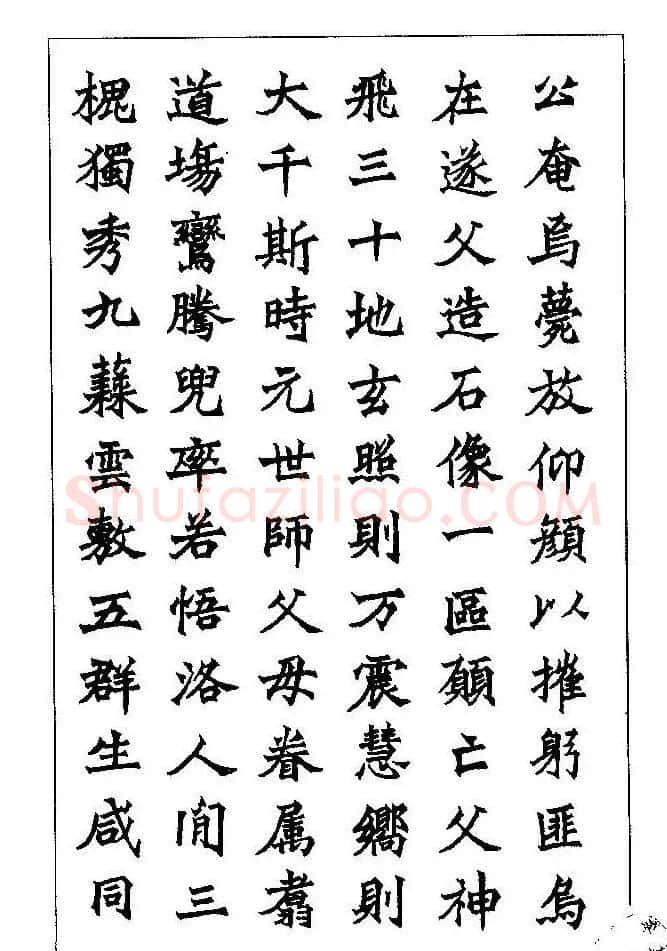 公奄焉薨放仰顔以摧躬匪烏
在遂父造石像一區願亡父神
飛三十地玄照則万震慧嚮則
大千斯時元世師父母眷属翥
道塲鸞騰兜率若悟洛人間三
槐獨秀九蕀雲敷五群生咸同
Shufaziliao.COM